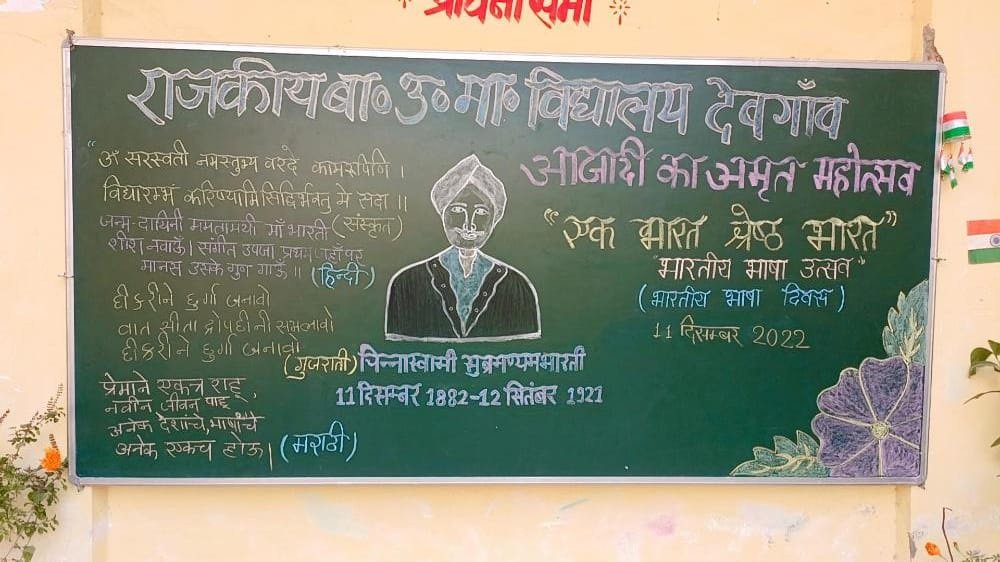 प्रायना सभा
राजकीय बा० उ० मा० विद्यालय देवगाँव
"ॐ सरस्वती नमस्तुभ्य वरदे कामरूपीणि ।
विद्यारम्भं करिष्यामि सिद्धिर्भवतु मे सदा ।।
(संस्कृत)
जन्म-दायिनी ममतामयी माँ भारती
शीश नवाऊँ। संगीत उपजा प्रथम जहाँ पर
मानस उसके गुन गाऊँ ।। (हिन्दी)
दीकरीने दुर्गा बनावो
वात सीता द्रोपदीनी समलावो
दीकरीने दुर्गा बनावो
(गुजराती)
प्रेमाने एकत्र राहू,
नवीन जीवन पाहू
अनेक देशांचे, भाषांचे
अनेक एकच होऊ। (मराठी)
चिन्नास्वामी सुब्रमण्यमभारती
11 दिसम्बर 1882-12 सितंबर 1921
आजादी का अमृत महोत्सव
"एक भारत श्रेष्ठ भारत"
"भारतीय भाषा उत्सव"
(भारतीय भाषा दिवस)
11 दिसम्बर 2022